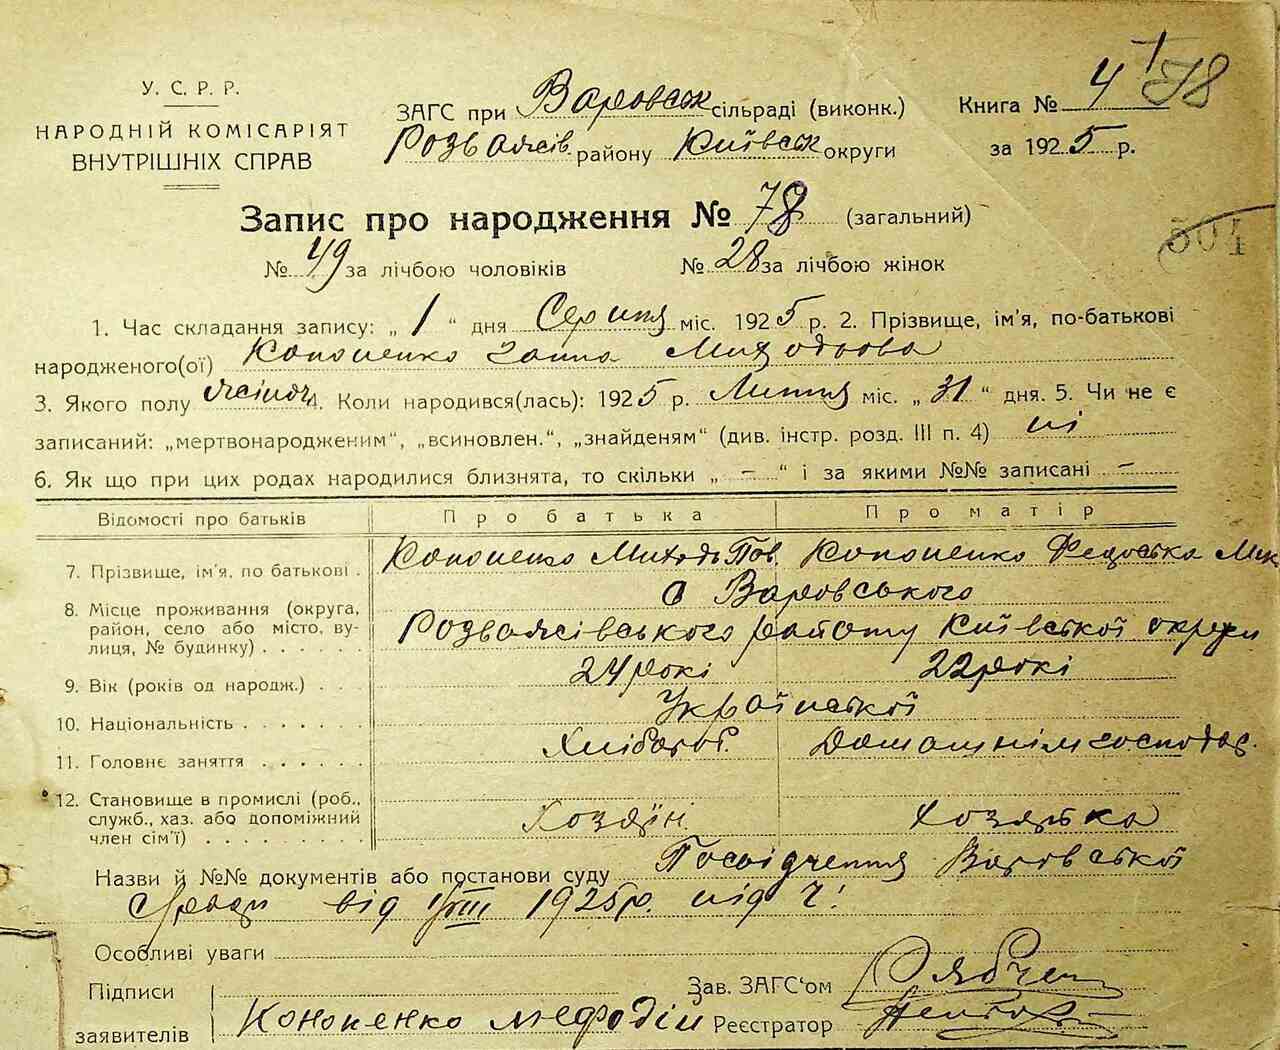 У. С. Р. Р.
НАРОДНІЙ КОМІСАРІЯТ
ВНУТРІШНІХ СПРАВ
ЗАГС при Варовськ сільраді (виконк.)
Розважів. району Київськ округи
Книга № 4
78
за 1925 р.
Запис про народження № 78 (загальний)
504
№ 49 за лічбою чоловіків № 28 за лічбою жінок
1. Час складання запису: „ 1 “ дня Серпня міс. 1925 р. 2. Прізвище, ім'я, по-батькові
народженого(ої) Кононенко Ганна
3. Якого полу жіноч 4. Коли народився(лась): 1925 р. Липня міс. „ 31 “ дня. 5. Чи не є
записаний: „мертвонародженим“, „всиновлен.“, „знайденям“ (див. інстр. розд. III п. 4) ні
6. Як що при цих родах народилися близнята, то скільки „ - “ і за якими №№ записані -
Відомості про батьків Про батька Про матір
7. Прізвище, ім'я, по батькові . Кононенко Пав. Кононенко Федоська Мик
8. Місце проживання (округа, район, село або місто, вулиця, № будинку) . . . . . с Варовського
Розважівського району Київської округи
9. Вік (років од народж.) . . . 24 рокі 22 рокі
10. Національність . . . . . . . Української
11. Головне заняття . . . . . . Хлібороб. Домашнім господар.
12. Становище в промислі (роб., служб., хаз. або допоміжний член сім'ї) . . . . . . . . . Хозяїн Хозяйка
Назви й №№ документів або постанови суду Посвідчення Варовської
с/ради від 1/VIII 1925 р. під ч!
Особливі уваги
Підписи
заявителів Кононенко Мефодій
Зав. ЗАГС'ом
Реєстратор